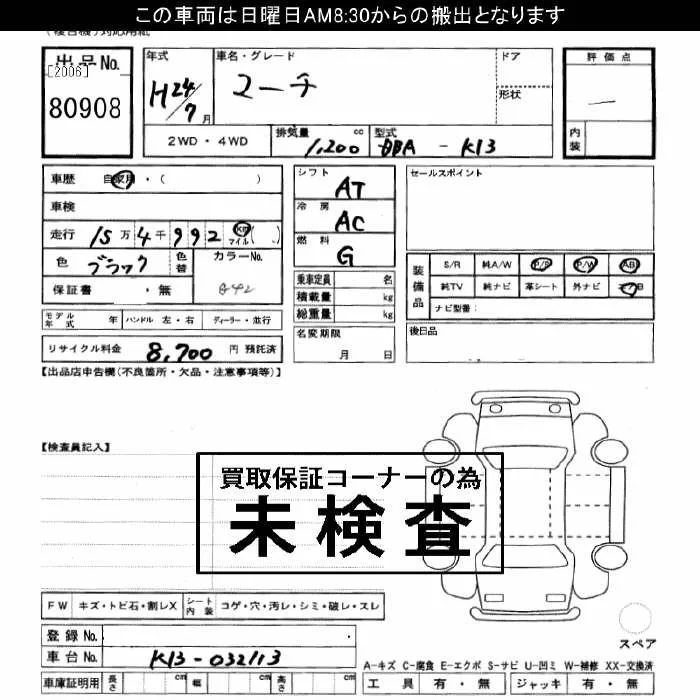 この車両は日曜日AM8:30からの搬出となります
(複合機)対応用紙
出品No.
[2006]
80908
年式
H24/7月
車名・グレード
マーチ
ドア
形状
評価点
内装
2WD・4WD
排気量 1,200 cc
型式 DBA - K13
車歴 自家用・( )
車検
走行 15万4千992 km マイル( )
色 ブラック 色替 カラーNo.
G42
保証書 ・無
モデル年式 年 ハンドル 左・右 ディーラー・並行
リサイクル料金 8,700 円 預託済
シフト AT
冷房 AC
燃料 G
乗車定員 名
積載量 kg
総重量 kg
名変期限
月 日
セールスポイント
装備品
S/R 純A/W P/S P/W AB
純TV 純ナビ 革シート 外ナビ
ナビ型番:
後日品
【出品店申告欄(不良箇所・欠品・注意事項等)】
【検査員記入】
買取保証コーナーの為
未検査
FW キズ・トビ石・割レX シート内装 コゲ・穴・汚レ・シミ・破レ・スレ
登録No.
車台No. K13-032113
車庫証明用 長さ cm 幅 cm 高さ cm
スペア
A-キズ C-腐食 E-エクボ S-サビ U-凹ミ W-補修 XX-交換済
工具 有・無 ジャッキ 有・無